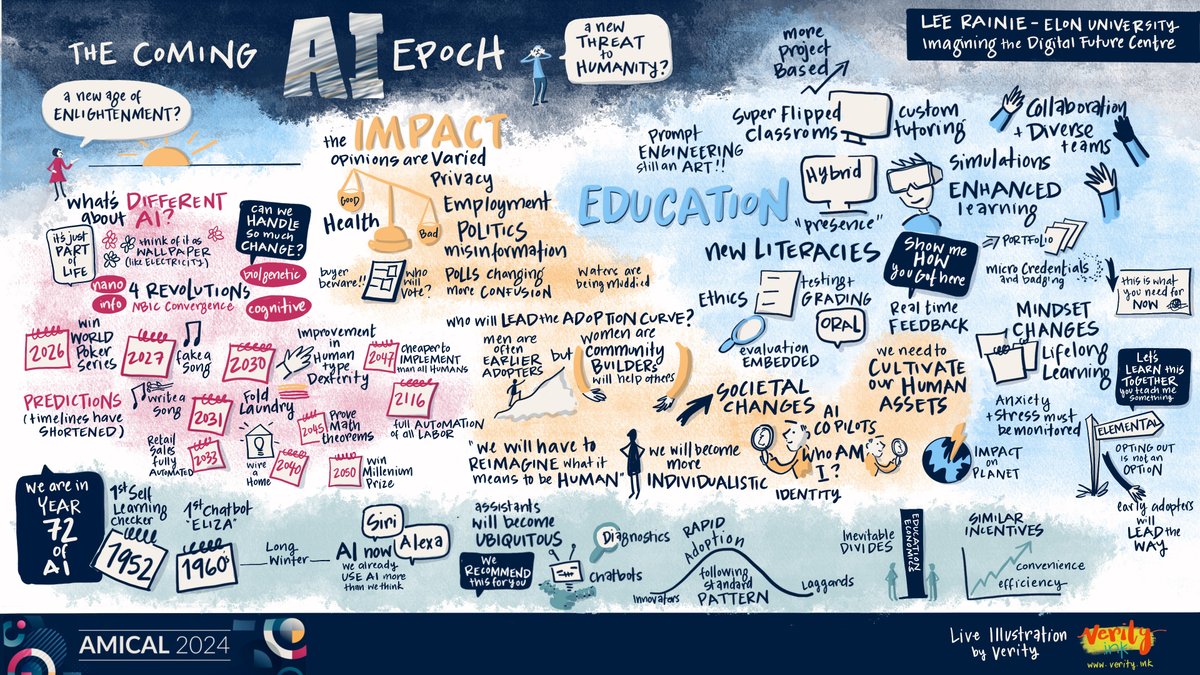 THE COMING AI EPOCH
a new
THREAT
to
HUMANITY?
LEE RAINIE - ELON UNIVERSITY
Imagining the Digital Future Centre
a new age of
ENLIGHTENMENT?
what's DIFFERENT
about AI?
it's just
PART
OF
LIFE
think of it as
WALLPAPER
(like ELECTRICITY)
can we
HANDLE
so much
CHANGE?
nano
info
bio/genetic
cognitive
4 REVOLUTIONS
NBIC Convergence
2026
win
WORLD
Poker
Series
2027
fake a
Song
write a
song
2030
improvement
in
Human
type
Dexterity
2047
cheaper to
IMPLEMENT
than all HUMANS
PREDICTIONS
(timelines have
SHORTENED)
2031
Fold
Laundry
2116
full AUTOMATION
of all LABOR
Retail
Sales
fully
AUTOMATED
2033
wire
a
Home
2040
2045
Prove
Math
theorems
2050
Win
Millenium
Prize
the IMPACT
opinions are Varied
GOOD
Bad
Health
Privacy
Employment
POLITICS
misinformation
buyer
beware!!
who
will
Vote?
POLLS changing
more CONFUSION
Waters are
being muddied
who will LEAD the ADOPTION CURVE?
men are
often
EARLIER
ADOPTERS
but
women are
Community
BUILDERS
will help others
SOCIETAL
CHANGES
"we will have to
REIMAGINE what it
means to be HUMAN"
we will become
more
INDIVIDUALISTIC
AI
COPILOTS
Who AM
I?
IDENTITY
EDUCATION
Prompt
ENGINEERING
still an ART!!
more
project
Based
Super Flipped
Classroms
custom
tutoring
Collaboration
+ Diverse
teams
Hybrid
"presence"
Simulations
ENHANCED
learning
new LITERACIES
Ethics
testing +
GRADING
ORAL
evaluation
EMBEDDED
Show me
HOW
you Got here
Real time
FEEDBACK
PORTFOLIO
micro Credentials
and badging
this is what
you need for
NOW
MINDSET
CHANGES
Lifelong
Learning
Let's
LEARN this
TOGETHER
you teach me
something
we need to
CULTIVATE
our HUMAN
ASSETS
Anxiety
+ Stress must
be monitored
IMPACT
on
PLANET
ELEMENTAL
OPTING OUT
is not an
OPTION
early adopters
will
LEAD the
WAY
we are in
YEAR
72
of
AI
1st Self
Learning
checker
1952
1st Chatbot
"ELIZA"
1960s
Long
Winter
Siri
Alexa
AI now
we already
USE AI more
than we think
assistants
will become
UBIQUITOUS
we
RECOMMEND
this for you
Diagnostics
chatbots
RAPID
Adoption
Innovators
following
standard
PATTERN
Laggards
Inevitable
DIVIDES
EDUCATION
ECONOMICS
SIMILAR
INCENTIVES
convenience
efficiency
AMICAL 2024
Live Illustration
by Verity
verity
ink
www.verity.mk